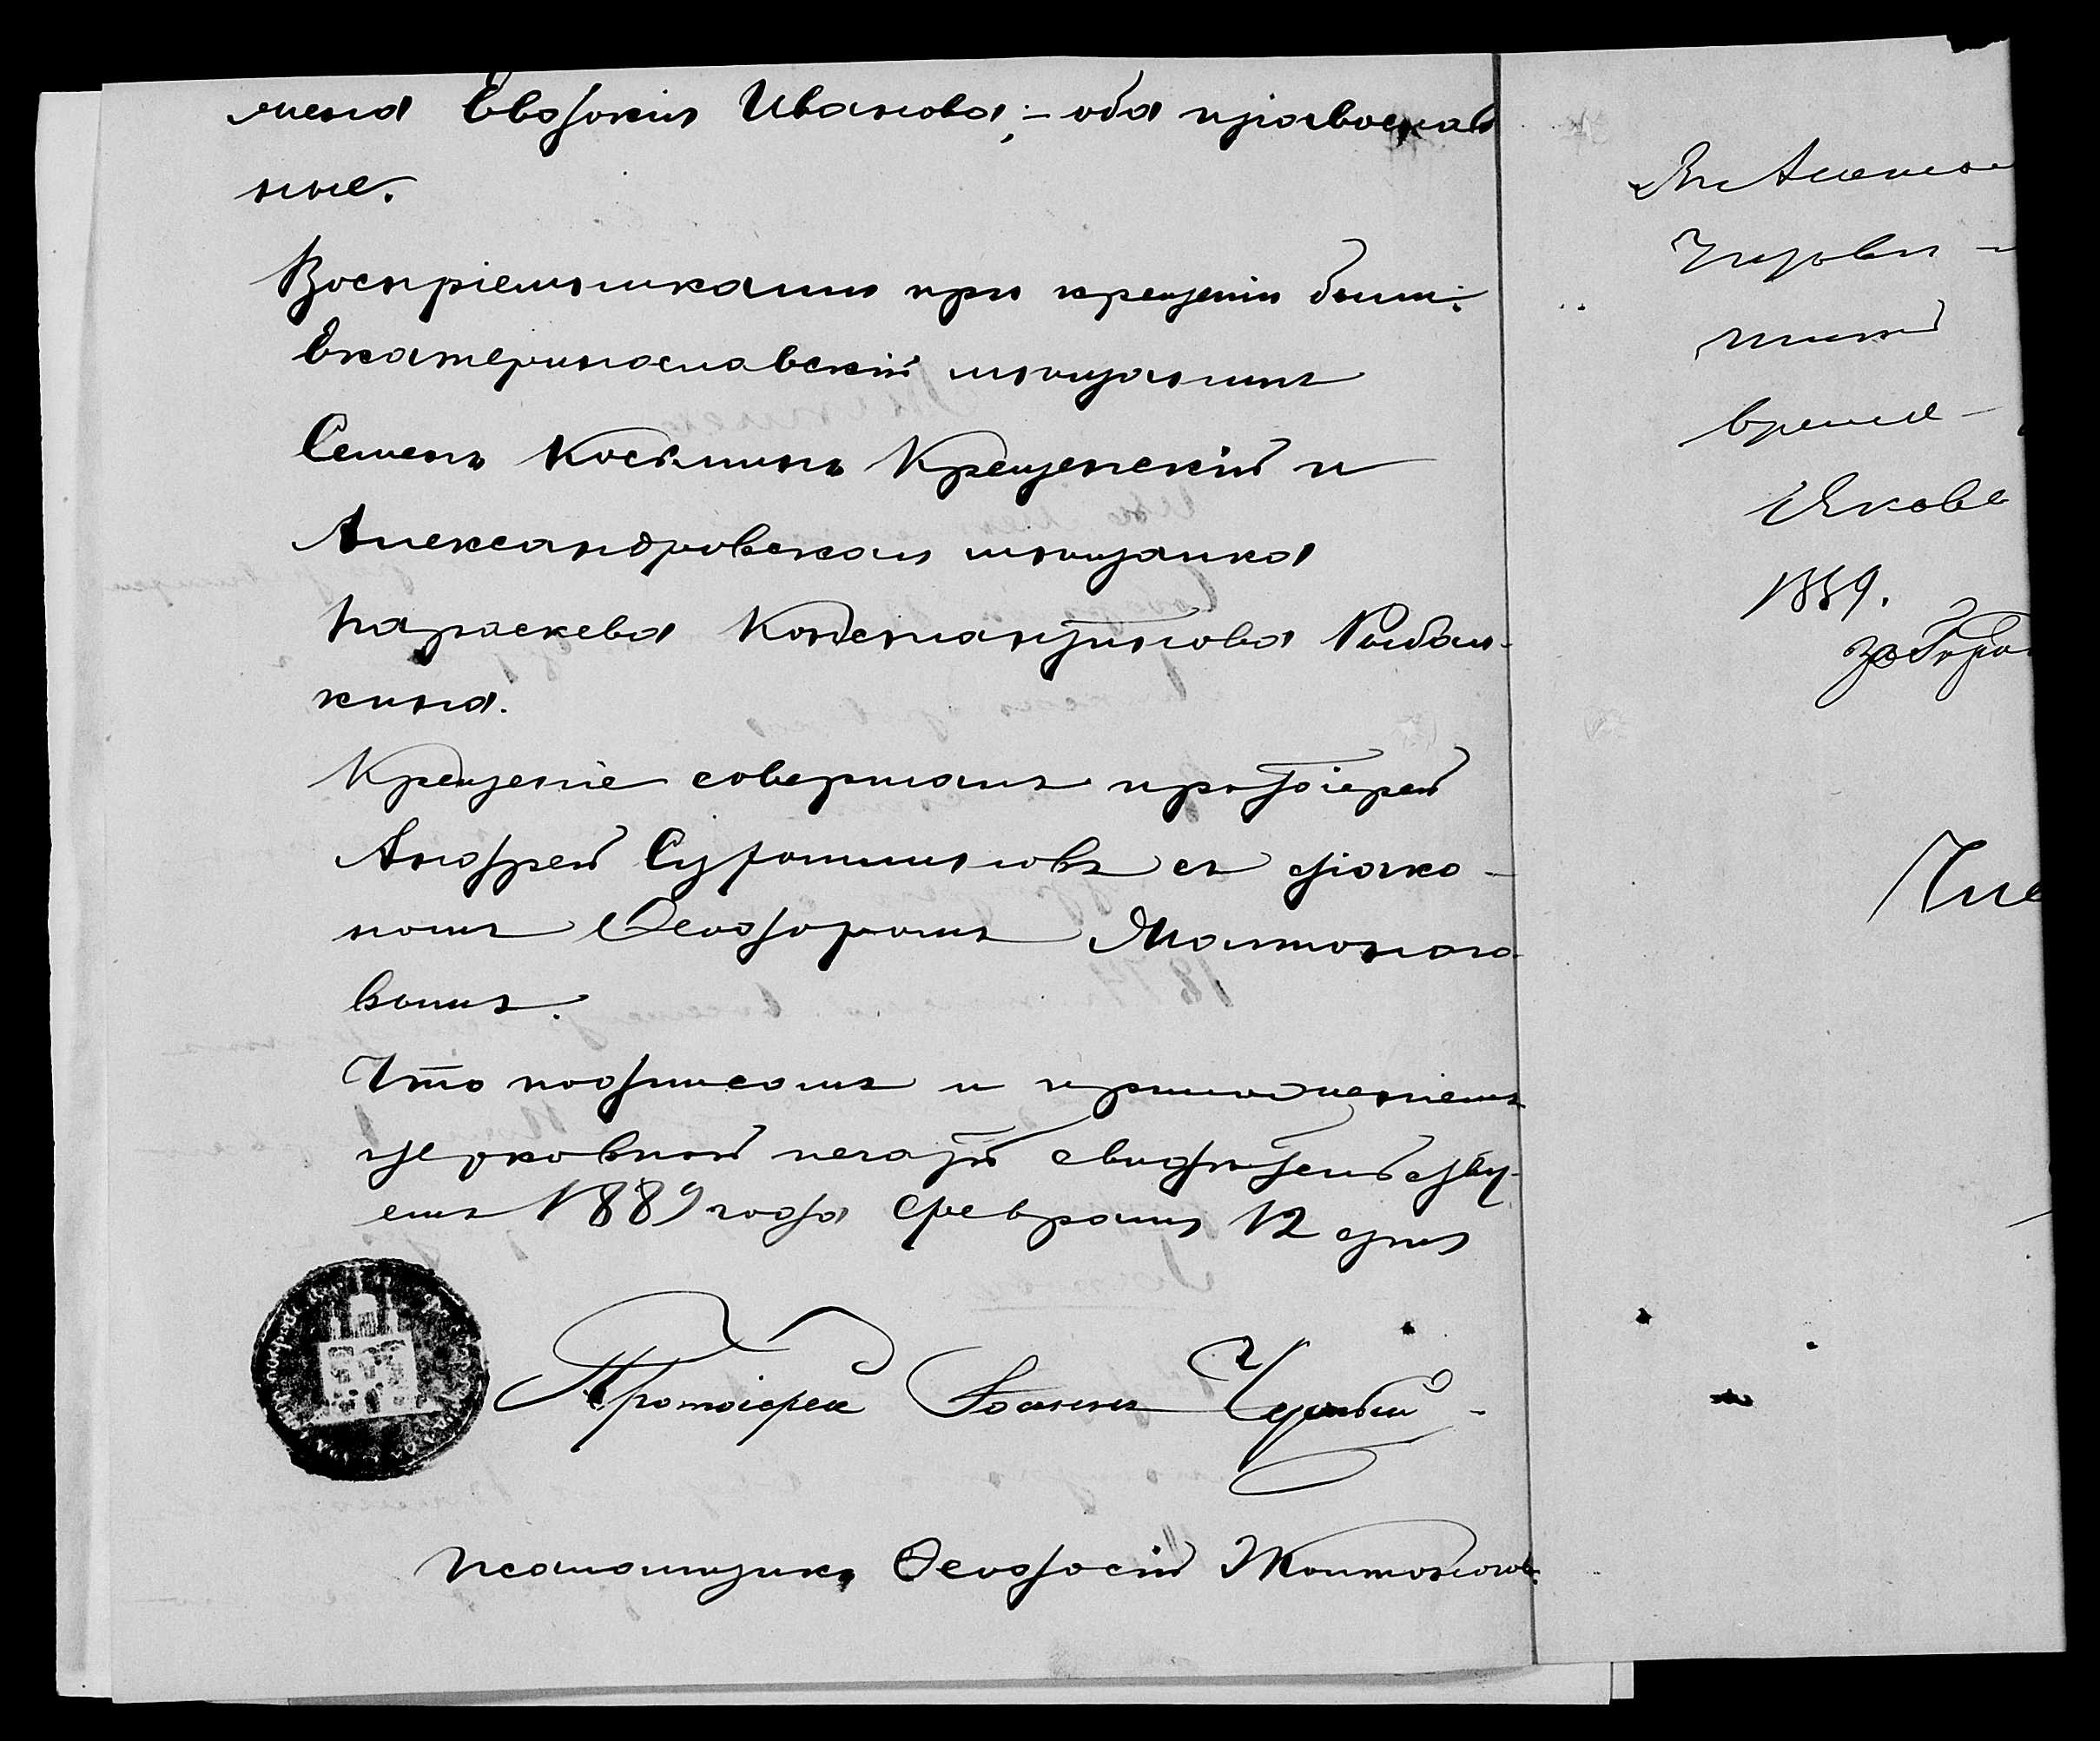 жена Евдокія Иванова; – оба православ
ные.
Воспріемниками при крещеніи были:
Екатеринославскій мѣщанинъ
Семенъ Косьминъ Крещенскій и
Александровская мѣщанка
Параскева Константинова Рыбал-
кина.
Крещеніе совершалъ протоіерей
Андрей съ діако-
номъ Ѳеодоромъ Жолтоного-
вымъ.
Что подписомъ и приложеніемъ
церковной печати свидѣтельству-
емъ 1889 года февраля 12 дня
Протоіерей Іоаннъ
Псаломщикъ Ѳеодосій Жолтоногов.
Въ
време-
Яковл
1889.